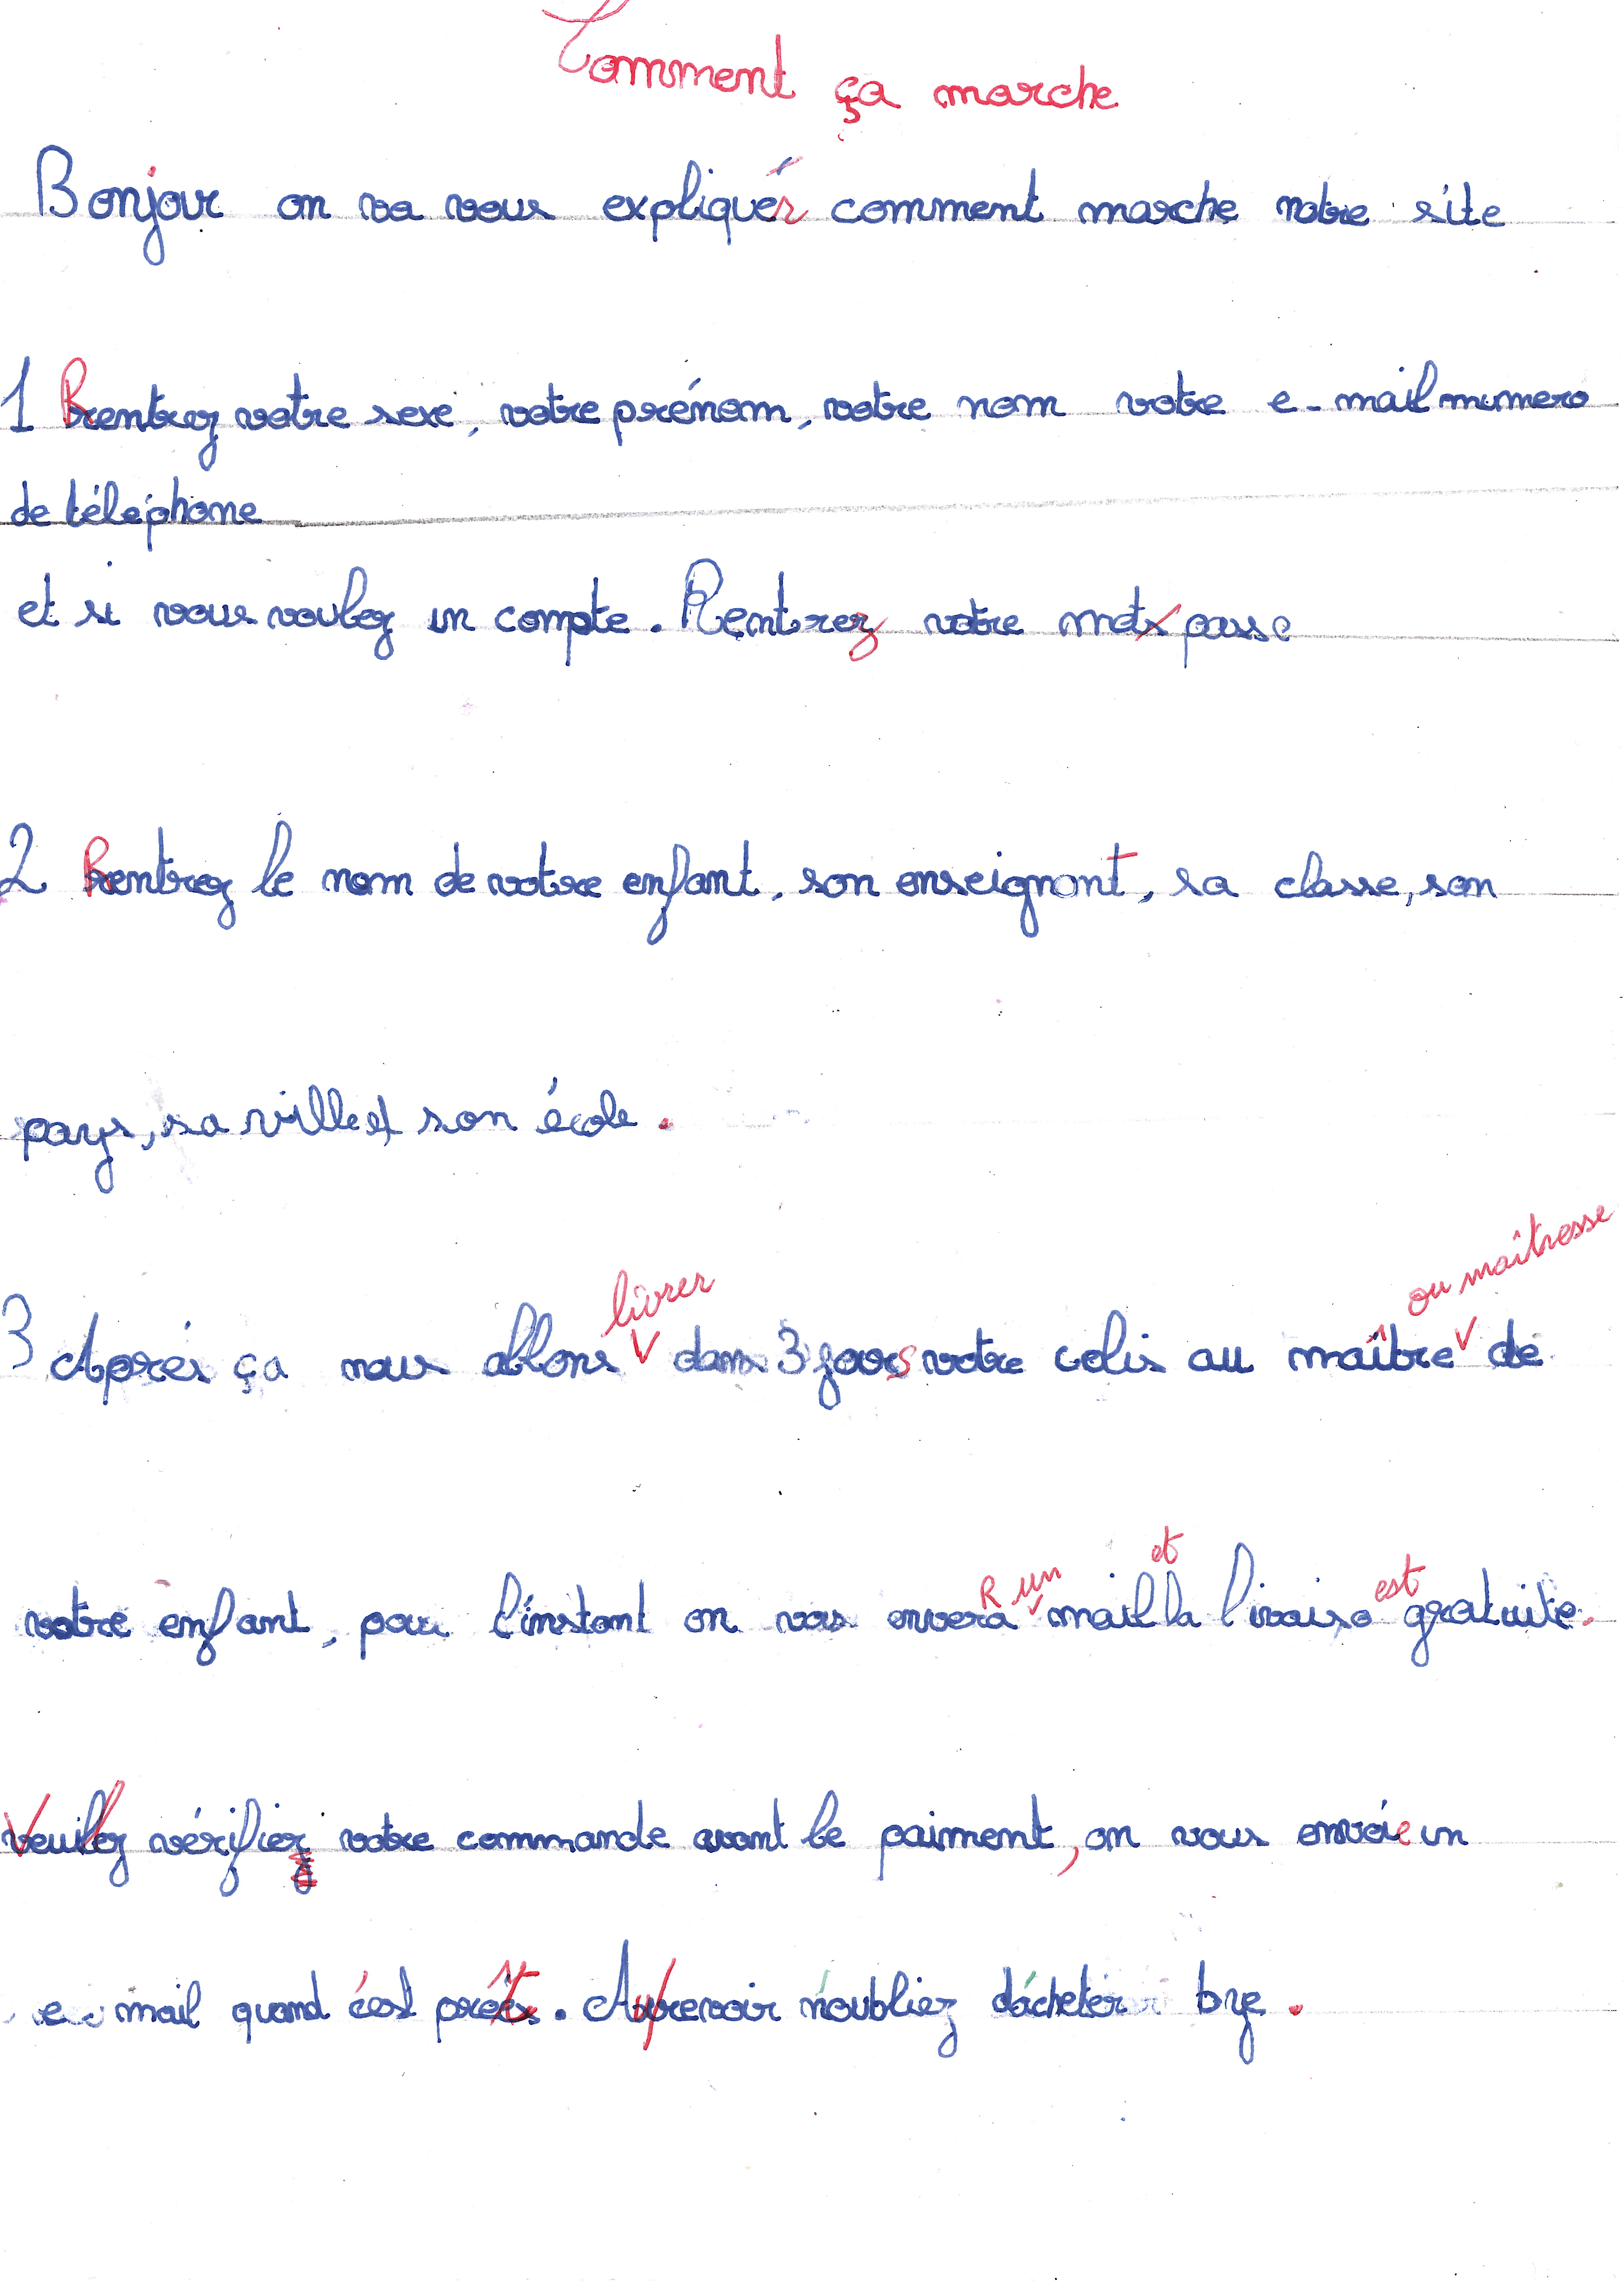 Comment ça marche
Bonjour on va vous expliquer comment marche notre site
1 Rentrez votre sexe, votre prénom, votre nom votre e-mail numero
de téléphone
et si vous voulez un compte. Rentrez votre mot passe
2 Rentrez le nom de votre enfant, son enseignant, sa classe, son
pays, sa ville et son école.
ou maîtresse
livrer
3 Après ça nous allons dans 3 jours votre colis au maître de
R un et est
votre enfant, pour l'instant on vous envera mail la livraiso gratuite.
Veuillez vérifier votre commande avant le paiment, on vous envoie un
e-mail quand c'est prêt. Au revoir n'oubliez d'acheter bye.